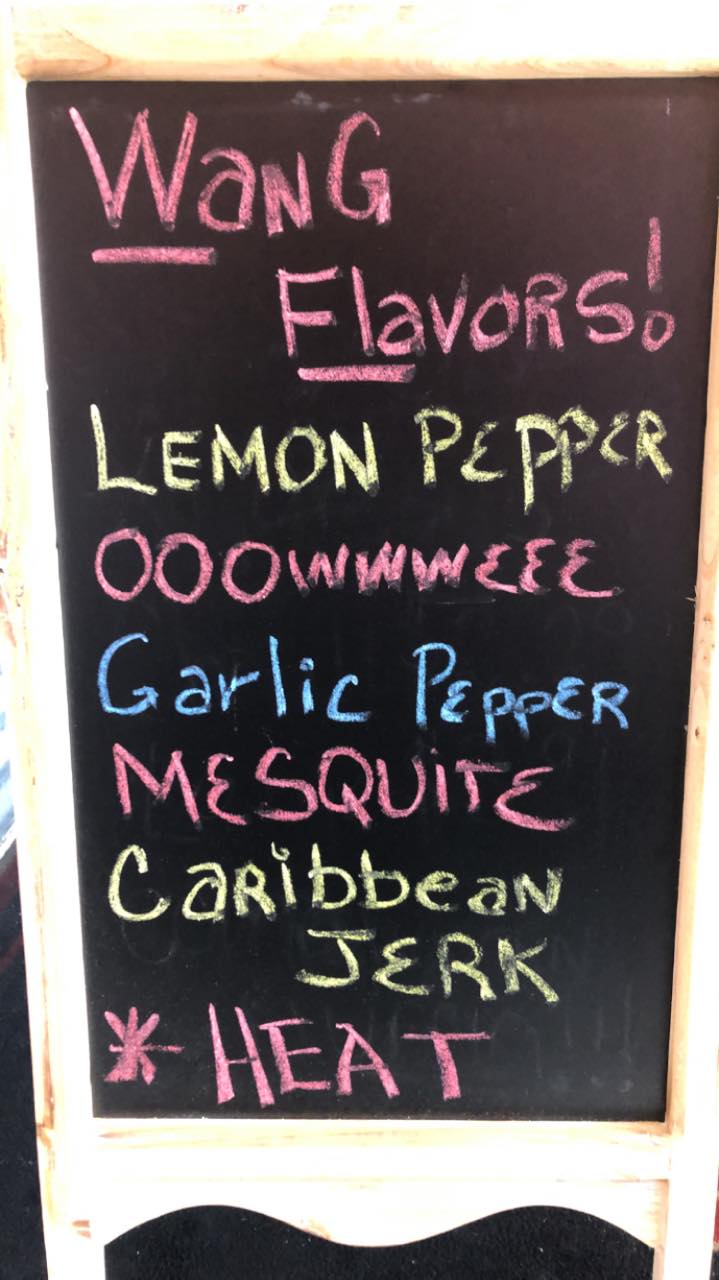 WanG
Flavors!
LEMON PEPPER
OOOWWWEEE
Garlic PEPPER
MESQUiTE
CARibbean
JERK
* HEAT